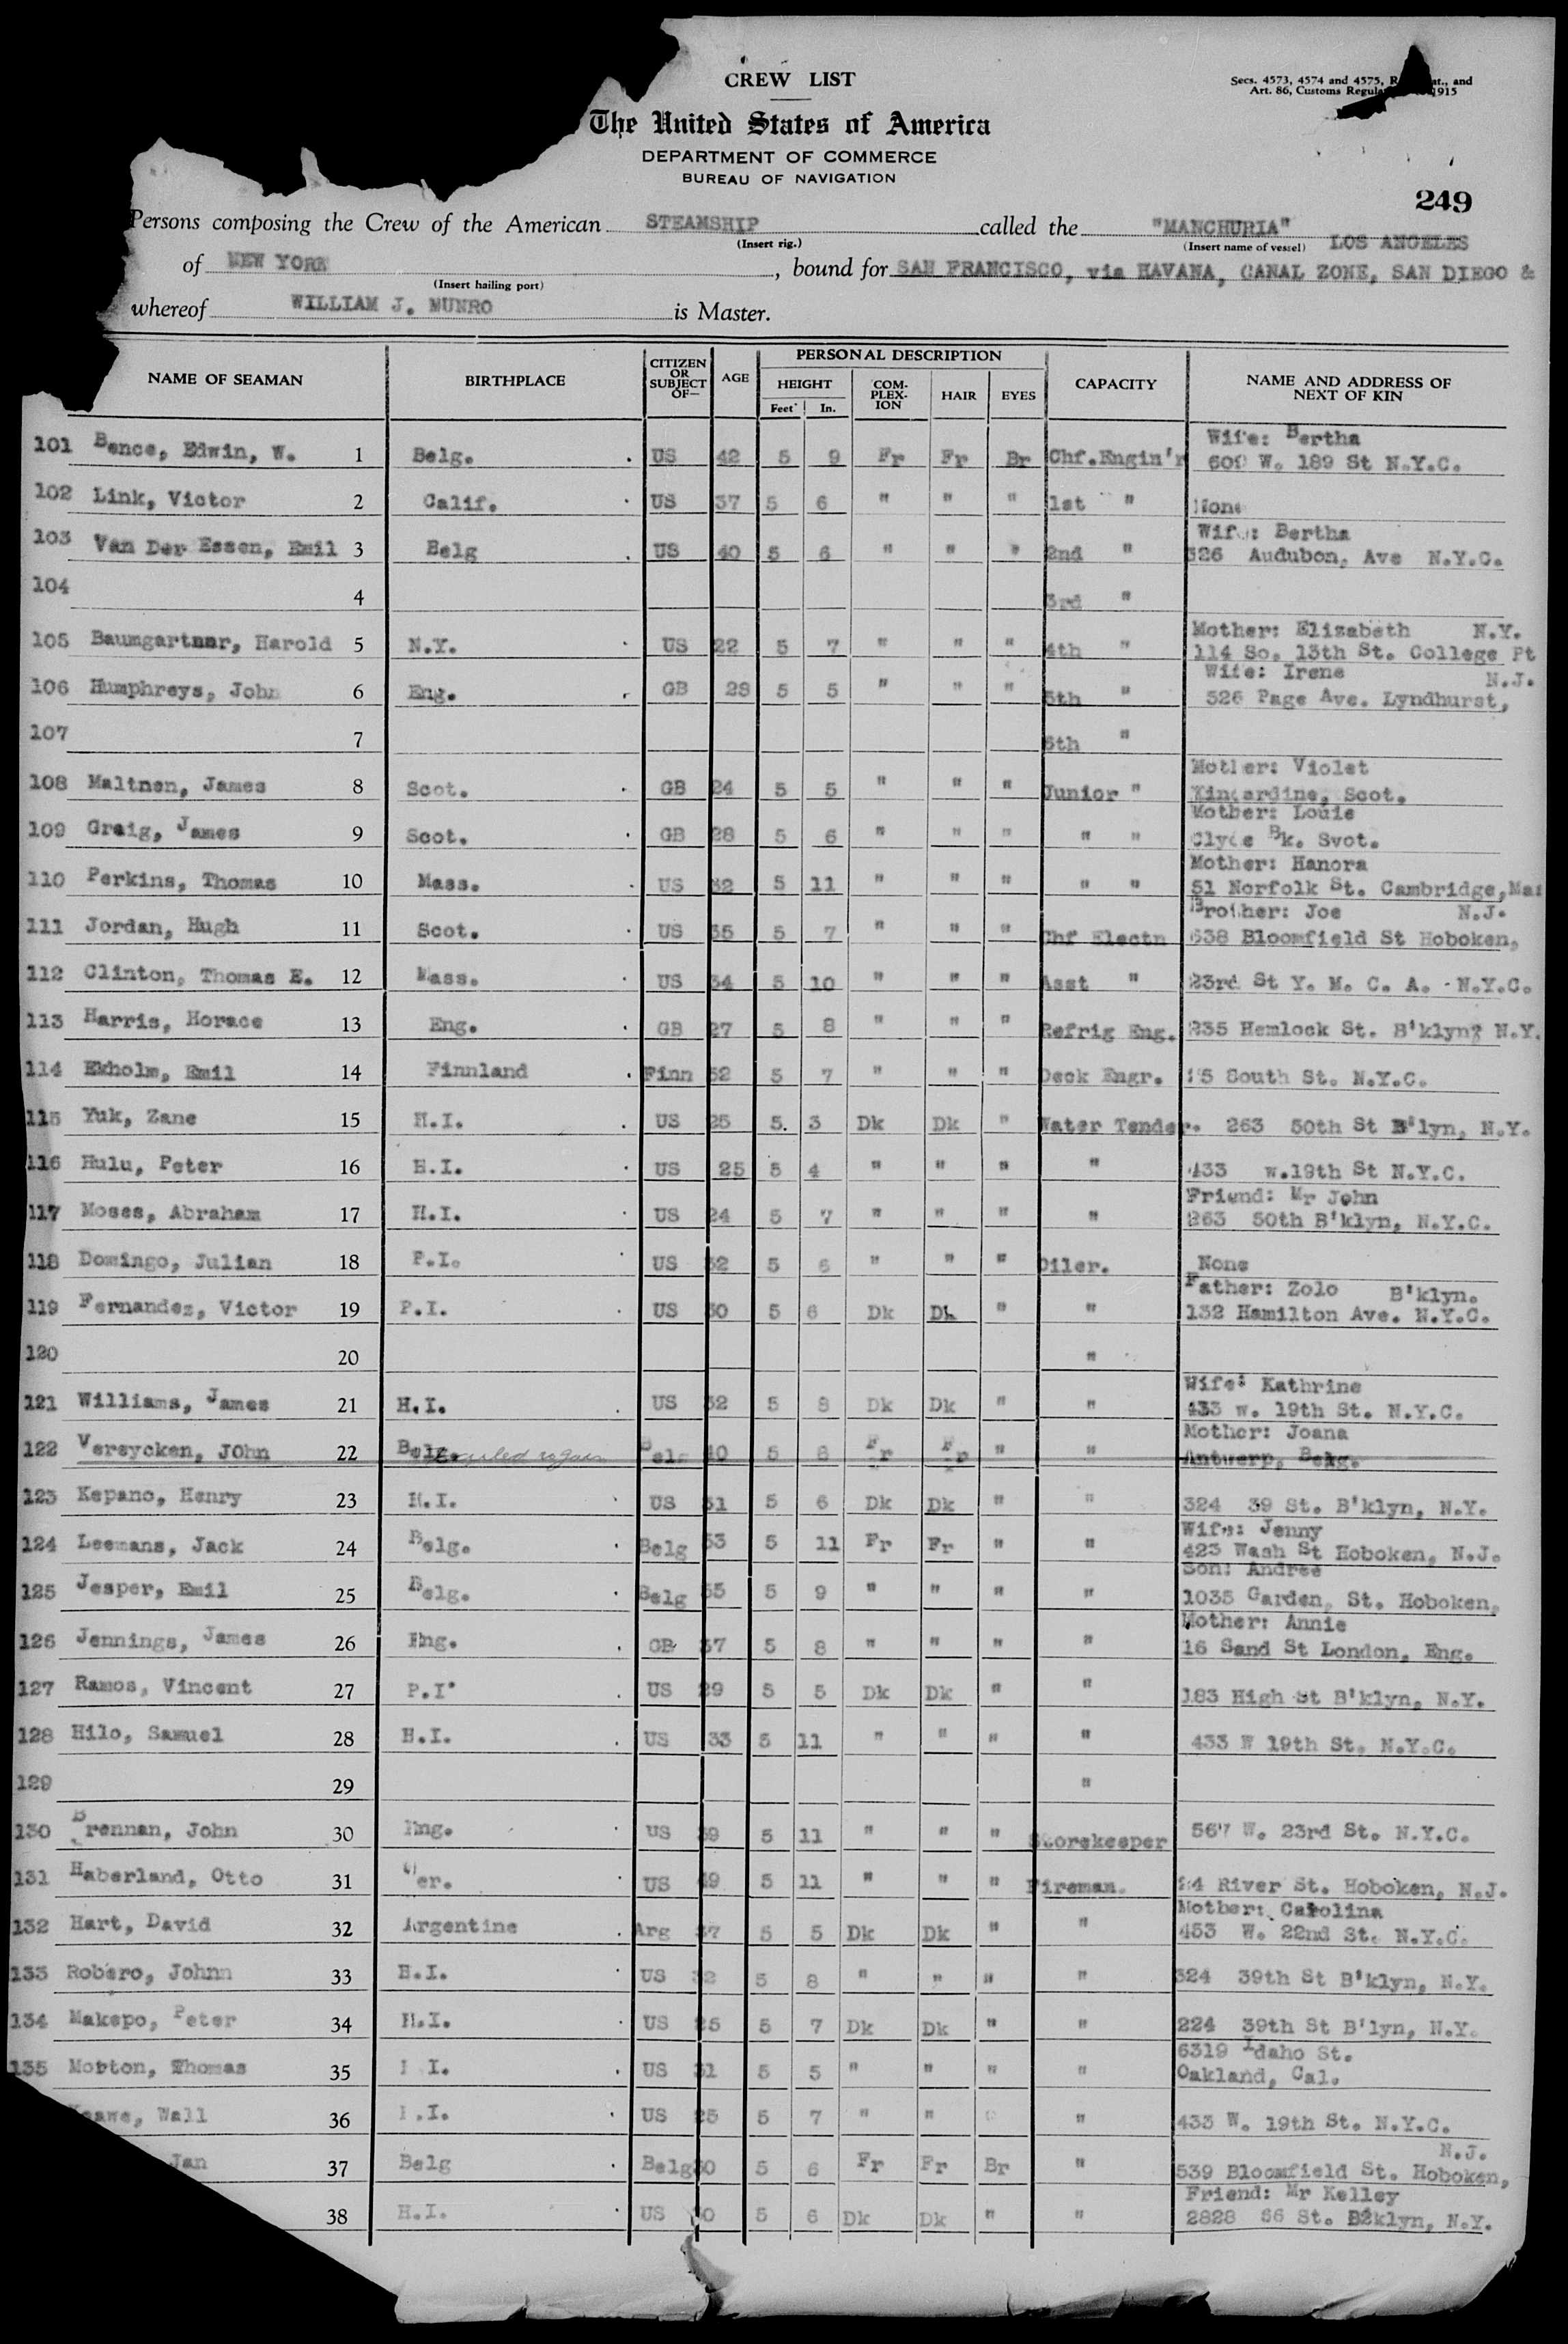 CREW LIST
Secs. 4573, 4574 and 4575, and
Art. 86, Customs 1915
The United States of America
DEPARTMENT OF COMMERCE
BUREAU OF NAVIGATION
249
Persons composing the Crew of the American STEAMSHIP called the "MANCHURIA"
(Insert rig.) (Insert name of vessel) LOS ANGELES
of NEW YORK, bound for SAN FRANCISCO, via HAVANA, CANAL ZONE, SAN DIEGO &
(Insert hailing port)
whereof WILLIAM J. MUNRO is Master.
NAME OF SEAMAN BIRTHPLACE CITIZEN OR SUBJECT OF— AGE PERSONAL DESCRIPTION CAPACITY NAME AND ADDRESS OF NEXT OF KIN
HEIGHT COM-PLEX-ION HAIR EYES
Feet In.
Wife: Bertha
101 Bence, Edwin, W. 1 Belg. US 42 5 9 Fr Fr Br Chf.Engin'r 609 W. 189 St N.Y.C.
102 Link, Victor 2 Calif. US 37 5 6 " " " 1st " None
Wife: Bertha
103 Van Der Essen, Emil 3 Belg US 40 5 6 " " " 2nd " 526 Audubon, Ave N.Y.C.
104 4 3rd "
Mother: Elizabeth N.Y.
105 Baumgartnar, Harold 5 N.Y. US 22 5 7 " " " 4th " 114 So. 13th St. College Pt
Wife: Irene N.J.
106 Humphreys, John 6 Eng. GB 28 5 5 " " " 5th " 526 Page Ave. Lyndhurst,
107 7 6th "
Mother: Violet
108 Maltnen, James 8 Scot. GB 24 5 5 " " " Junior " Kincardine, Scot.
Mother: Louie
109 Graig, James 9 Scot. GB 28 5 6 " " " " " Clyde Bk. Svot.
Mother: Hanora
110 Perkins, Thomas 10 Mass. US 32 5 11 " " " " " 51 Norfolk St. Cambridge, Mas
Brother: Joe N.J.
111 Jordan, Hugh 11 Scot. US 35 5 7 " " " Chf Electn 638 Bloomfield St Hoboken,
112 Clinton, Thomas E. 12 Mass. US 34 5 10 " " " Asst " 23rd St Y. M. C. A. - N.Y.C.
113 Harris, Horace 13 Eng. GB 27 5 8 " " " Refrig Eng. 235 Hemlock St. B'klyn, N.Y.
114 Ekholm, Emil 14 Finnland Finn 52 5 7 " " " Deck Engr. 25 South St. N.Y.C.
115 Yuk, Zane 15 H.I. US 25 5. 3 Dk Dk " Water Tender. 263 50th St B'lyn, N.Y.
116 Hulu, Peter 16 H.I. US 25 5 4 " " " " 433 w.19th St N.Y.C.
Friend: Mr John
117 Moses, Abraham 17 H.I. US 24 5 7 " " " " 263 50th B'klyn, N.Y.C.
118 Domingo, Julian 18 P.I. US 32 5 6 " " " Oiler. None
Father: Zolo B'klyn.
119 Fernandez, Victor 19 P.I. US 30 5 6 Dk Dk " " 132 Hamilton Ave. N.Y.C.
120 20 "
Wife: Kathrine
121 Williams, James 21 H.I. US 32 5 8 Dk Dk " " 433 w. 19th St. N.Y.C.
Mother: Joana
122 Versycken, JOhn 22 Belg. Belg 40 5 8 Fr Fr " " Antwerp, Belg.
123 Kepano, Henry 23 H.I. US 31 5 6 Dk Dk " " 324 39 St. B'klyn, N.Y.
Wife: Jenny
124 Leemans, Jack 24 Belg. Belg 53 5 11 Fr Fr " " 423 Wash St Hoboken, N.J.
Son: Andree
125 Jesper, Emil 25 Belg. Belg 55 5 9 " " " " 1035 Garden, St. Hoboken,
Mother: Annie
126 Jennings, James 26 Eng. GB 37 5 8 " " " " 16 Sand St London, Eng.
127 Ramos, Vincent 27 P.I. US 29 5 5 Dk Dk " " 183 High St B'klyn, N.Y.
128 Hilo, Samuel 28 H.I. US 33 5 11 " " " " 433 W 19th St. N.Y.C.
129 29 "
130 Brennan, John 30 Eng. US 39 5 11 " " " Storekeeper 567 W. 23rd St. N.Y.C.
131 Haberland, Otto 31 Ger. US 49 5 11 " " " Fireman. 24 River St. Hoboken, N.J.
Mother: Carolina
132 Hart, David 32 Argentine Arg 37 5 5 Dk Dk " " 453 W. 22nd St. N.Y.C.
133 Robero, Johnn 33 H.I. US 32 5 8 " " " " 324 39th St B'klyn, N.Y.
134 Makepo, Peter 34 H.I. US 25 5 7 Dk Dk " " 224 39th St B'lyn, N.Y.
6319 Idaho St.
135 Morton, Thomas 35 I. US 31 5 5 " " " " Oakland, Cal.
Wall 36 .I. US 25 5 7 " " " 433 W. 19th St. N.Y.C.
N.J.
Jan 37 Belg Belg 30 5 6 Fr Fr Br " 539 Bloomfield St. Hoboken,
Friend: Mr Kelley
38 H.I. US 5 6 Dk Dk " " 2828 66 St. B'klyn, N.Y.